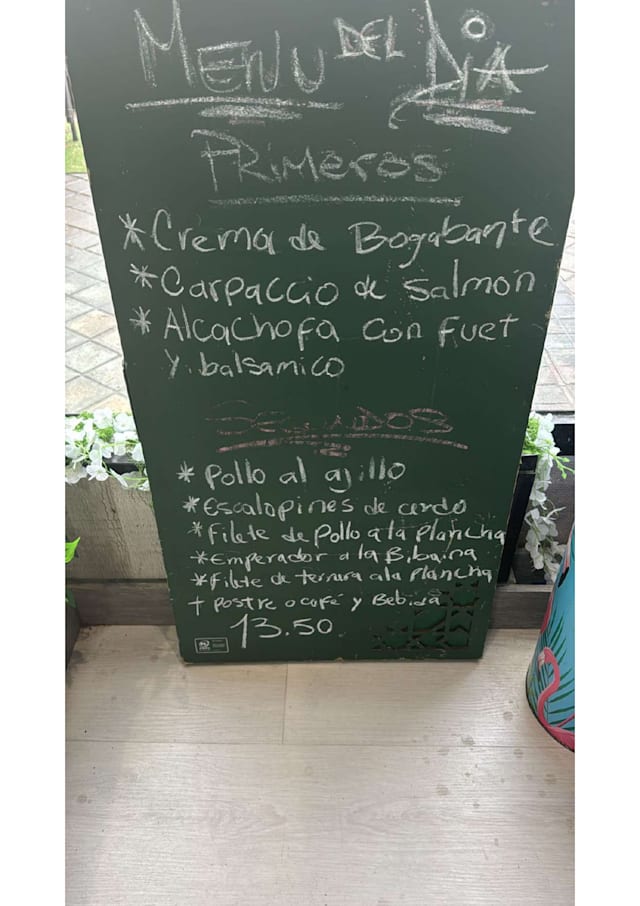 MENU DEL DIA
PRIMEROS
* Crema de Bogabante
* Carpaccio de Salmón
* Alcachofa con Fuet
y balsamico
SEGUNDOS
* Pollo al ajillo
* Escalopines de cerdo
* Filete de Pollo a la Plancha
* Emperador a la Bibaina
* Filete de ternura a la Plancha
+ Postre o café y Bebida
13.50